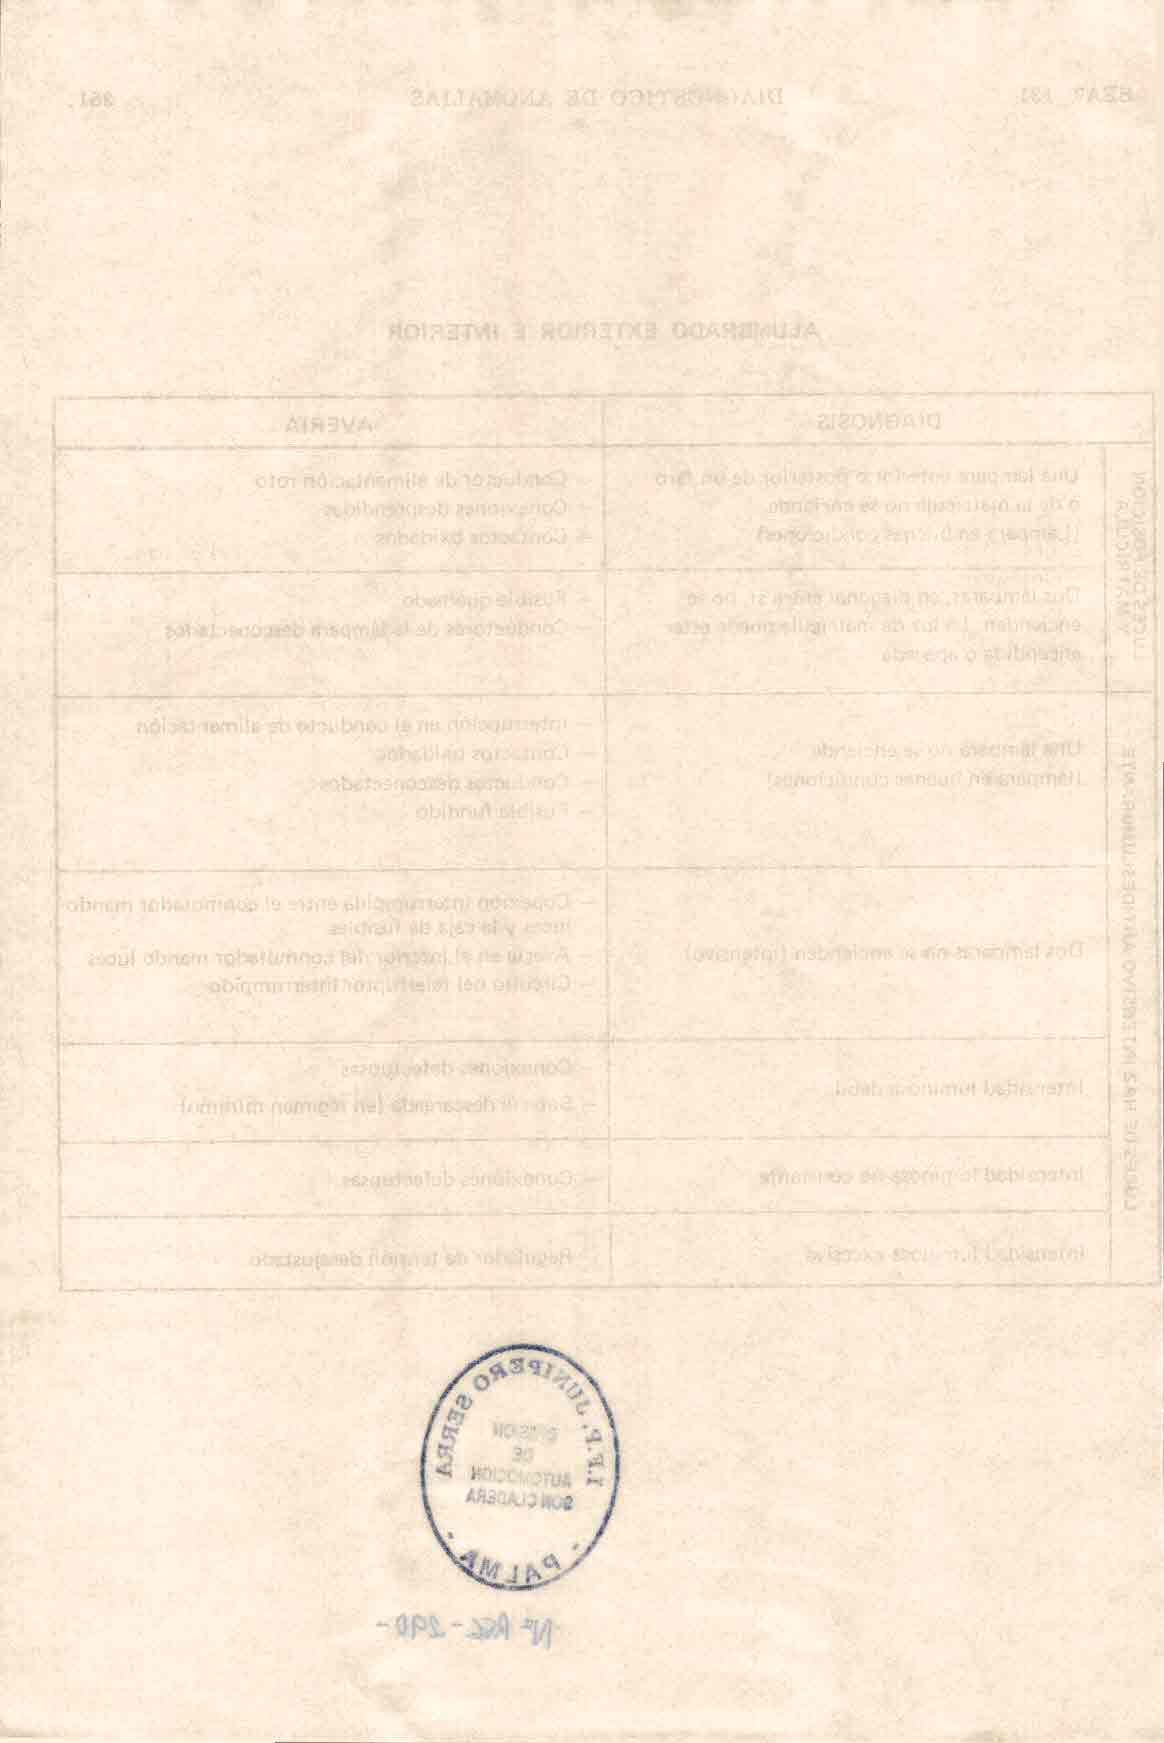 DIAGNOSTICO DE ANOMALIAS
ALUMBRADO EXTERIOR E INTERIOR
DIAGNOSIS
AVERIA
LUCES DE POSICION
Y MATRICULA
Una lampara anterior o posterior de un faro
o de la matricula no se enciende
(Lámpara en buenas condiciones)
— Conductor de alimentación roto
— Conexiones desprendidas
— Contactos oxidados
Dos lámparas, en diagonal entre si, no se
encienden. La luz de matricula puede estar
encendida o apagada
— Fusible quemado
— Conductores de la lámpara desconectados
Una lámpara no se enciende
(lámpara en buenas condiciones)
— Interrupción en el conducto de alimentación
— Contactos oxidados
— Conductos desconectados
— Fusible fundido
Dos lámparas no se encienden (intensivo)
— Conexión interrumpida entre el conmutador mando
luces y la caja de fusibles
— Avería en el interior del conmutador mando luces
— Circuito del interruptor interrumpido
Intensidad luminosa debil
— Conexiones defectuosas
— Batería descargada (en régimen mínimo)
Intensidad luminosa no constante
— Conexiones defectuosas
Intensidad luminosa excesiva
Regulador de tensión desajustado
I.F.P. JUNIPERO SERRA
DIVISION
DE
AUTOMOCION
SON CLADERA
- PALMA -